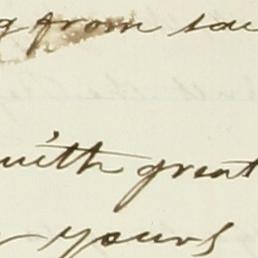 from
with great
yours